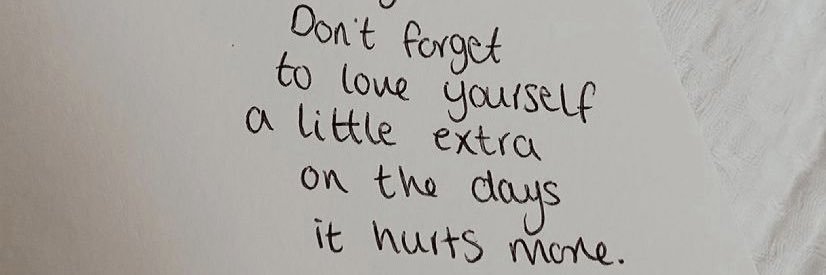 Don't forget
to love yourself
a little extra
on the days
it hurts more.